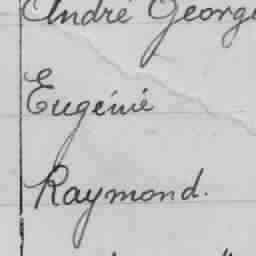 André George
Eugénie
Raymond.